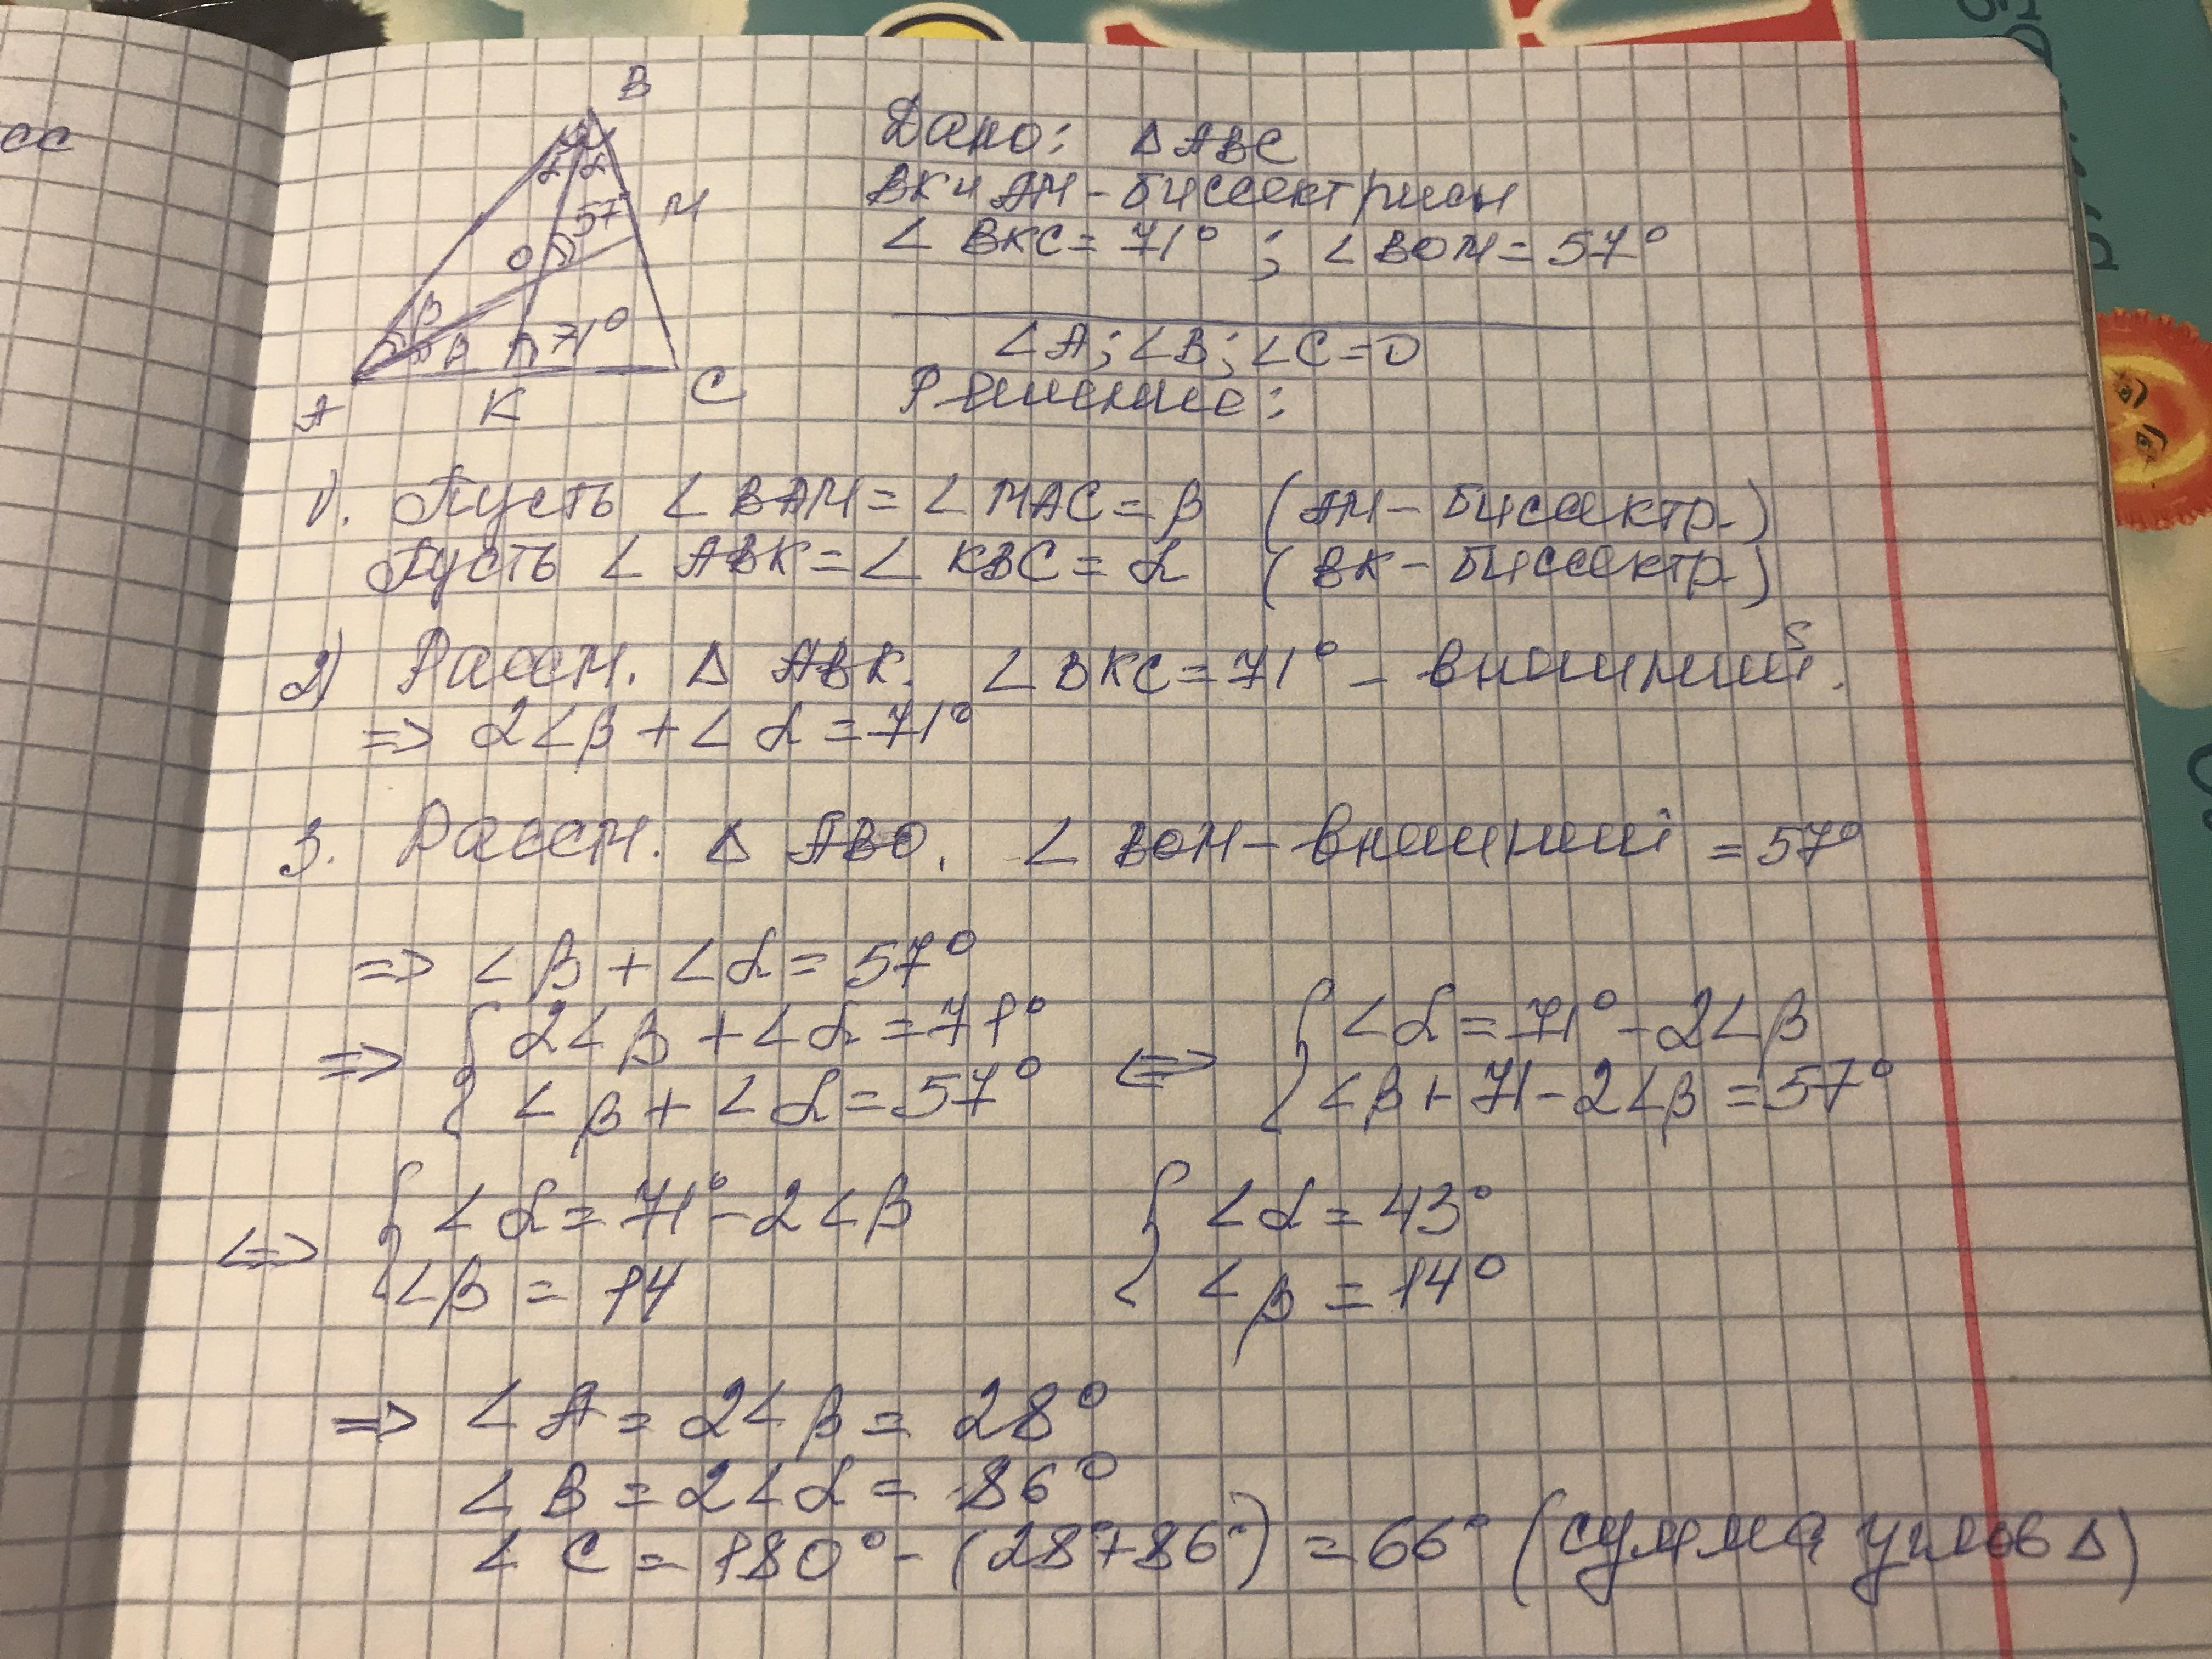 сс
B
α α
57
M
O
β
β
71°
A
K
C
Дано: Δ ABC
BK и AM - биссектрисы
∠ BKC = 71° ; ∠ BOM = 57°
∠A; ∠B; ∠C = ?
Решение:
1). Пусть ∠ BAM = ∠ MAC = β (AM - биссектр.)
Пусть ∠ ABK = ∠ KBC = α (BK - биссектр.)
2) Рассм. Δ ABK. ∠ BKC = 71° - внешний.
=> 2∠β + ∠α = 71°
3. Рассм. Δ ABO. ∠ BOM - внешний = 57°
=> ∠β + ∠α = 57°
=> { 2∠β + ∠α = 71° <=> { ∠α = 71° - 2∠β
∠β + ∠α = 57° ∠β + 71 - 2∠β = 57°
<=> { ∠α = 71° - 2∠β { ∠α = 43°
∠β = 14 ∠β = 14°
=> ∠A = 2∠β = 28°
∠B = 2∠α = 86°
∠C = 180° - (28°+86°) = 66° (сумма углов Δ)